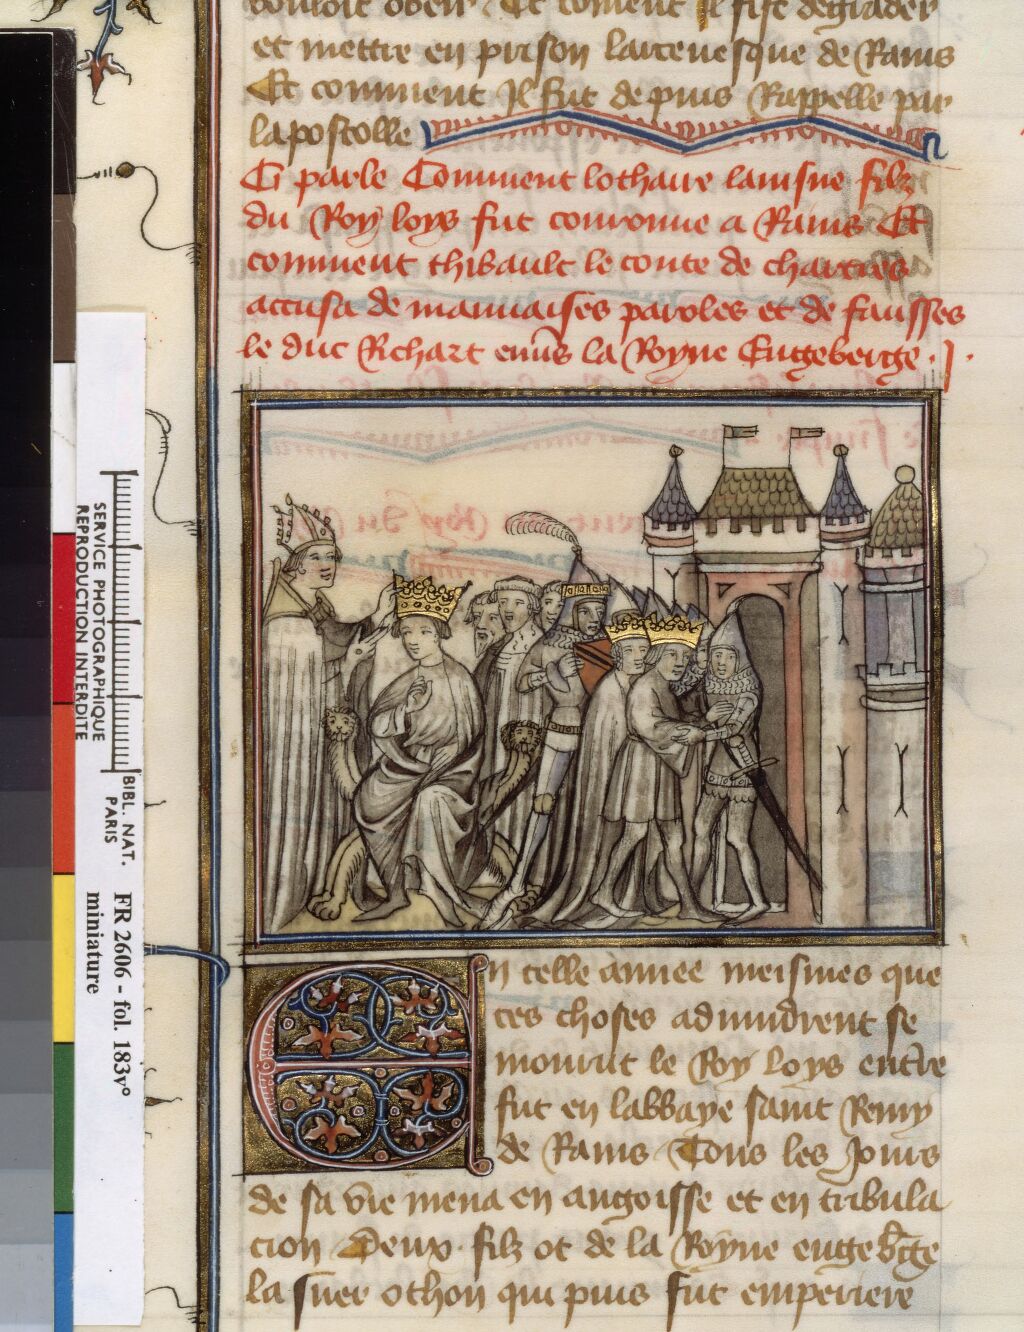 vouloit obeir. Et coment il fist degrader
et mettre en prison larcevesque de Rains
Et comment Il fut depuis Rappelle par
lapostolle
Ci parle Comment lothaire lainsne filz
du Roy loys fut couronne a Rains Et
comment thibault le conte de chartres
accusa de mauvaises paroles et de fausses
le duc Richart envs la Royne Engeberge . j .
En celle annee meismes que
ces choses advindrent se
mourut le Roy loys enterre
fut en labbaye saint Remy
de Rains Tous les Jours
de sa vie mena en angoisse et en tribula
cion Deux filz ot de la Royne engeberge
la suer othon qui puis fut emperiere
SERVICE PHOTOGRAPHIQUE
REPRODUCTION INTERDITE
BIBL. NAT.
PARIS
FR 2606 - fol. 183v°
miniature